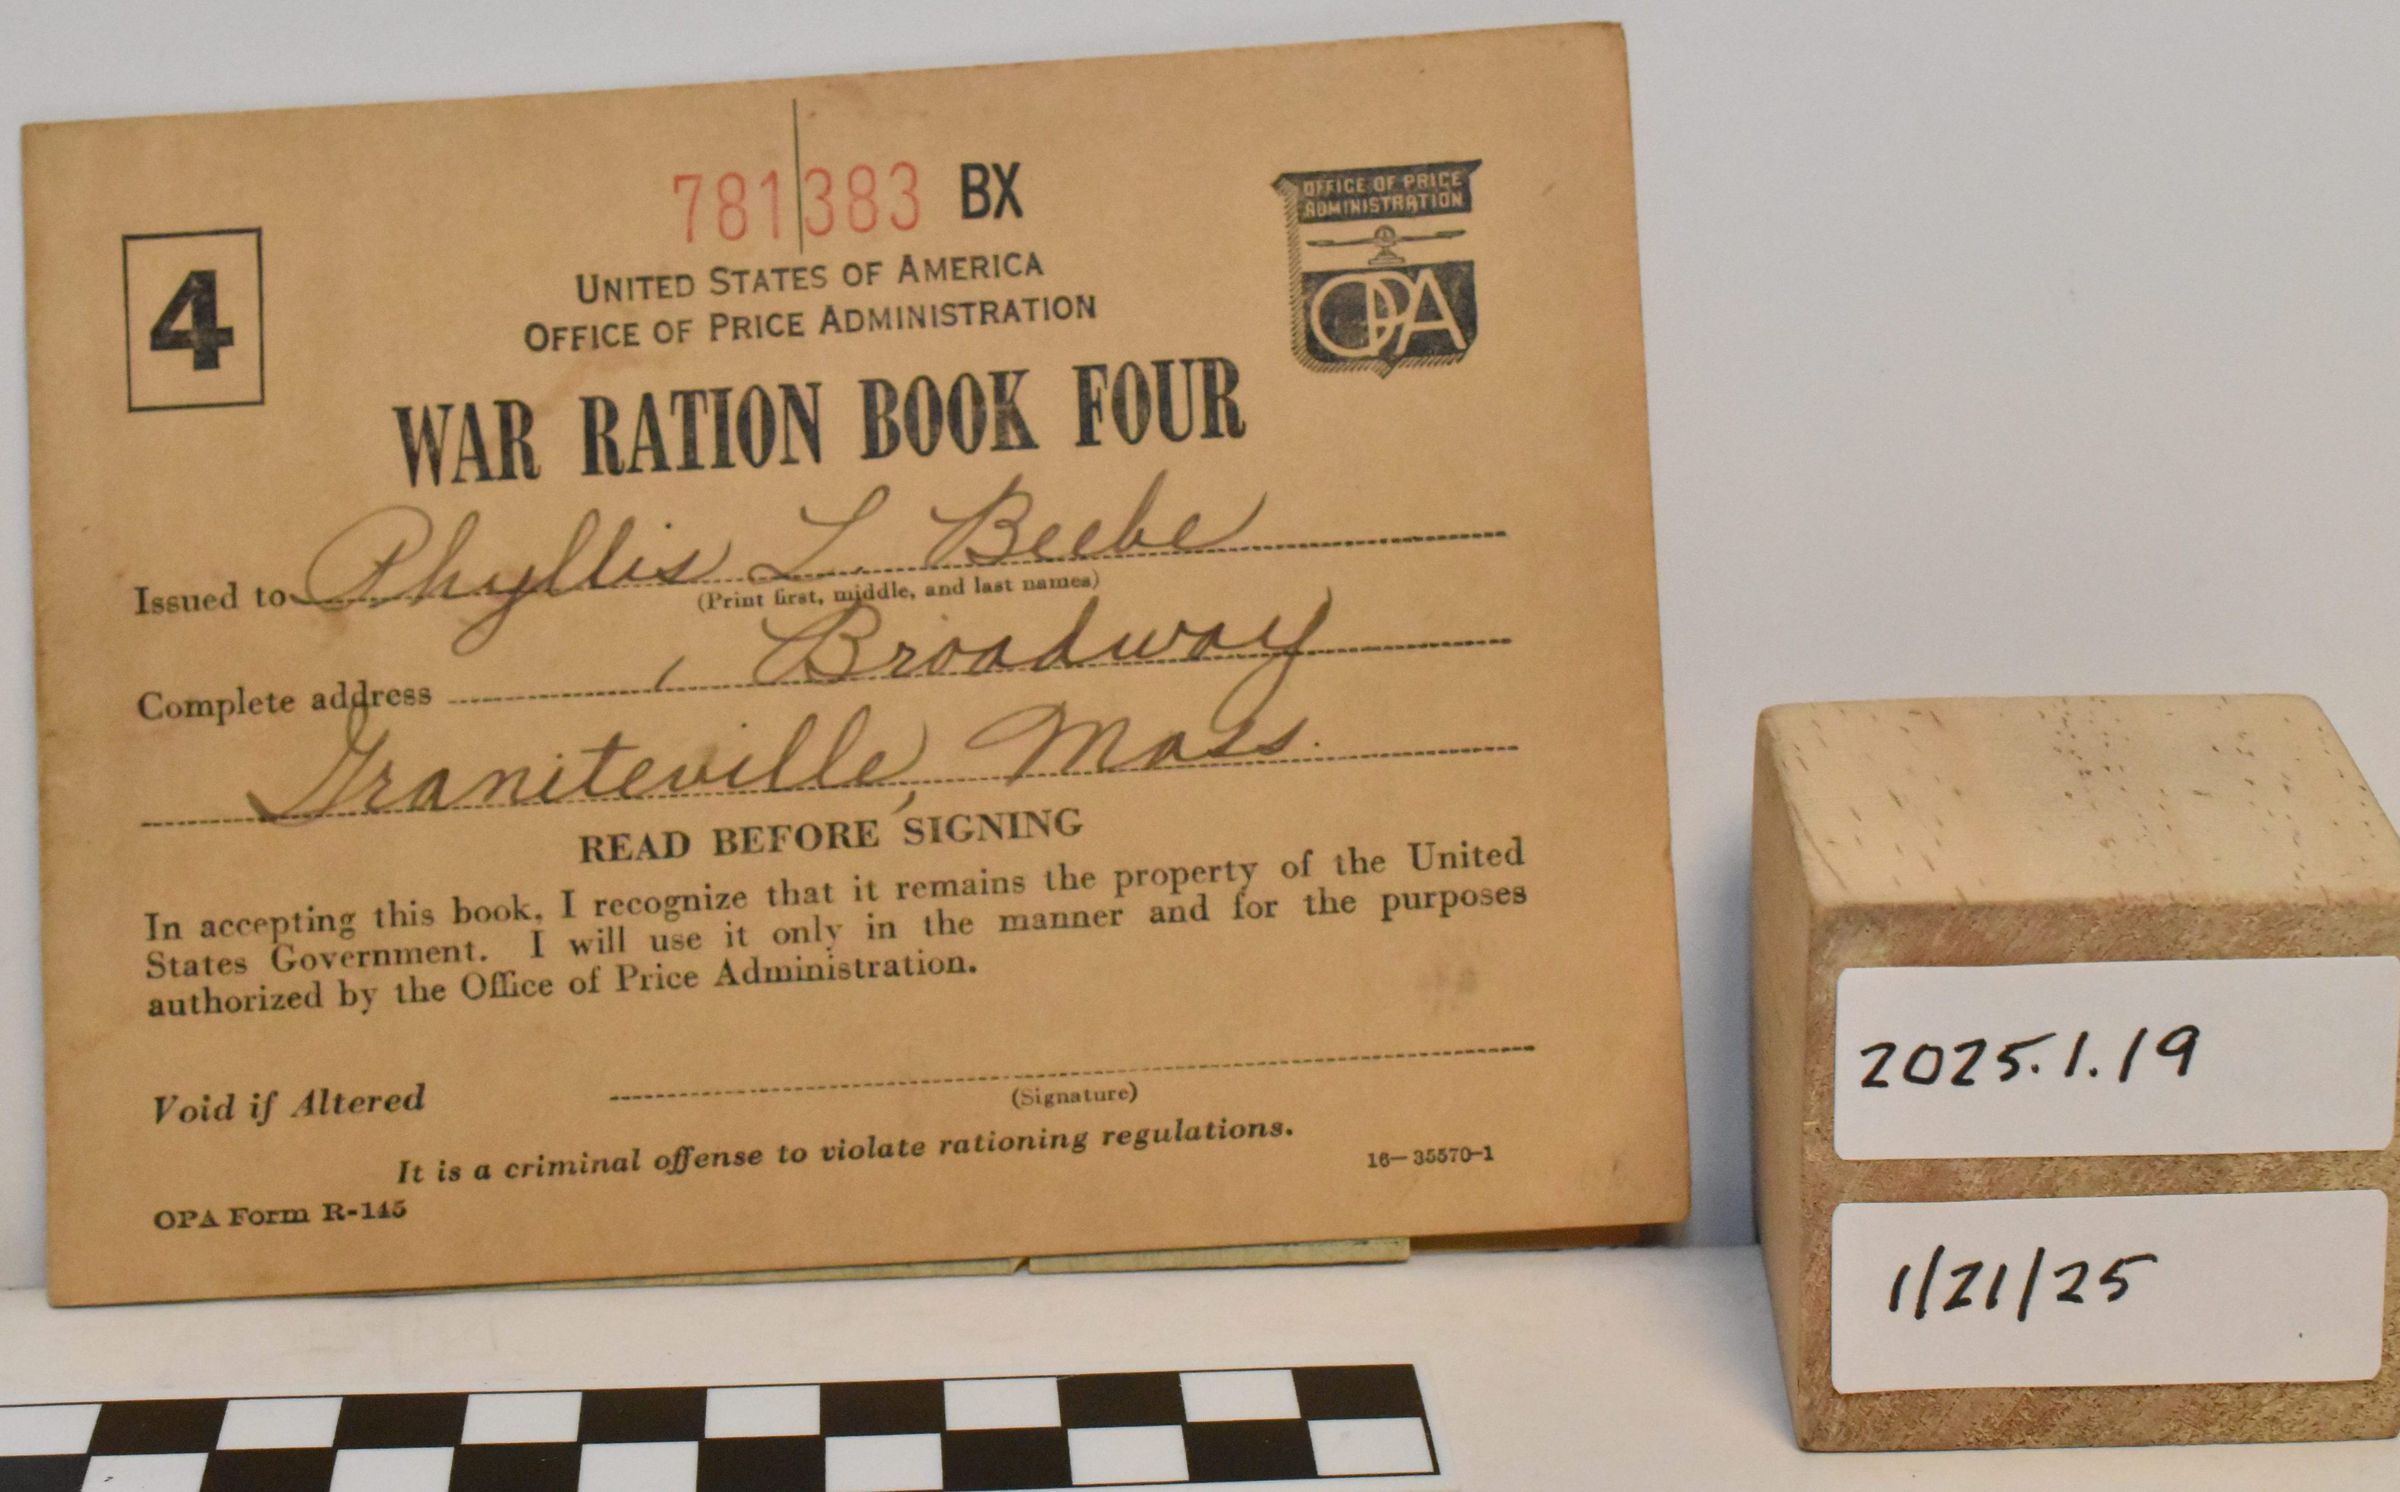 781383 BX
4
UNITED STATES OF AMERICA
OFFICE OF PRICE ADMINISTRATION
OFFICE OF PRICE
ADMINISTRATION
OPA
WAR RATION BOOK FOUR
Issued to Phyllis L. Beebe
(Print first, middle, and last names)
Complete address , Broadway
Graniteville, Mass.
READ BEFORE SIGNING
In accepting this book, I recognize that it remains the property of the United
States Government. I will use it only in the manner and for the purposes
authorized by the Office of Price Administration.
Void if Altered
(Signature)
It is a criminal offense to violate rationing regulations.
OPA Form R-145
16—35570-1
2025.1.19
1/21/25